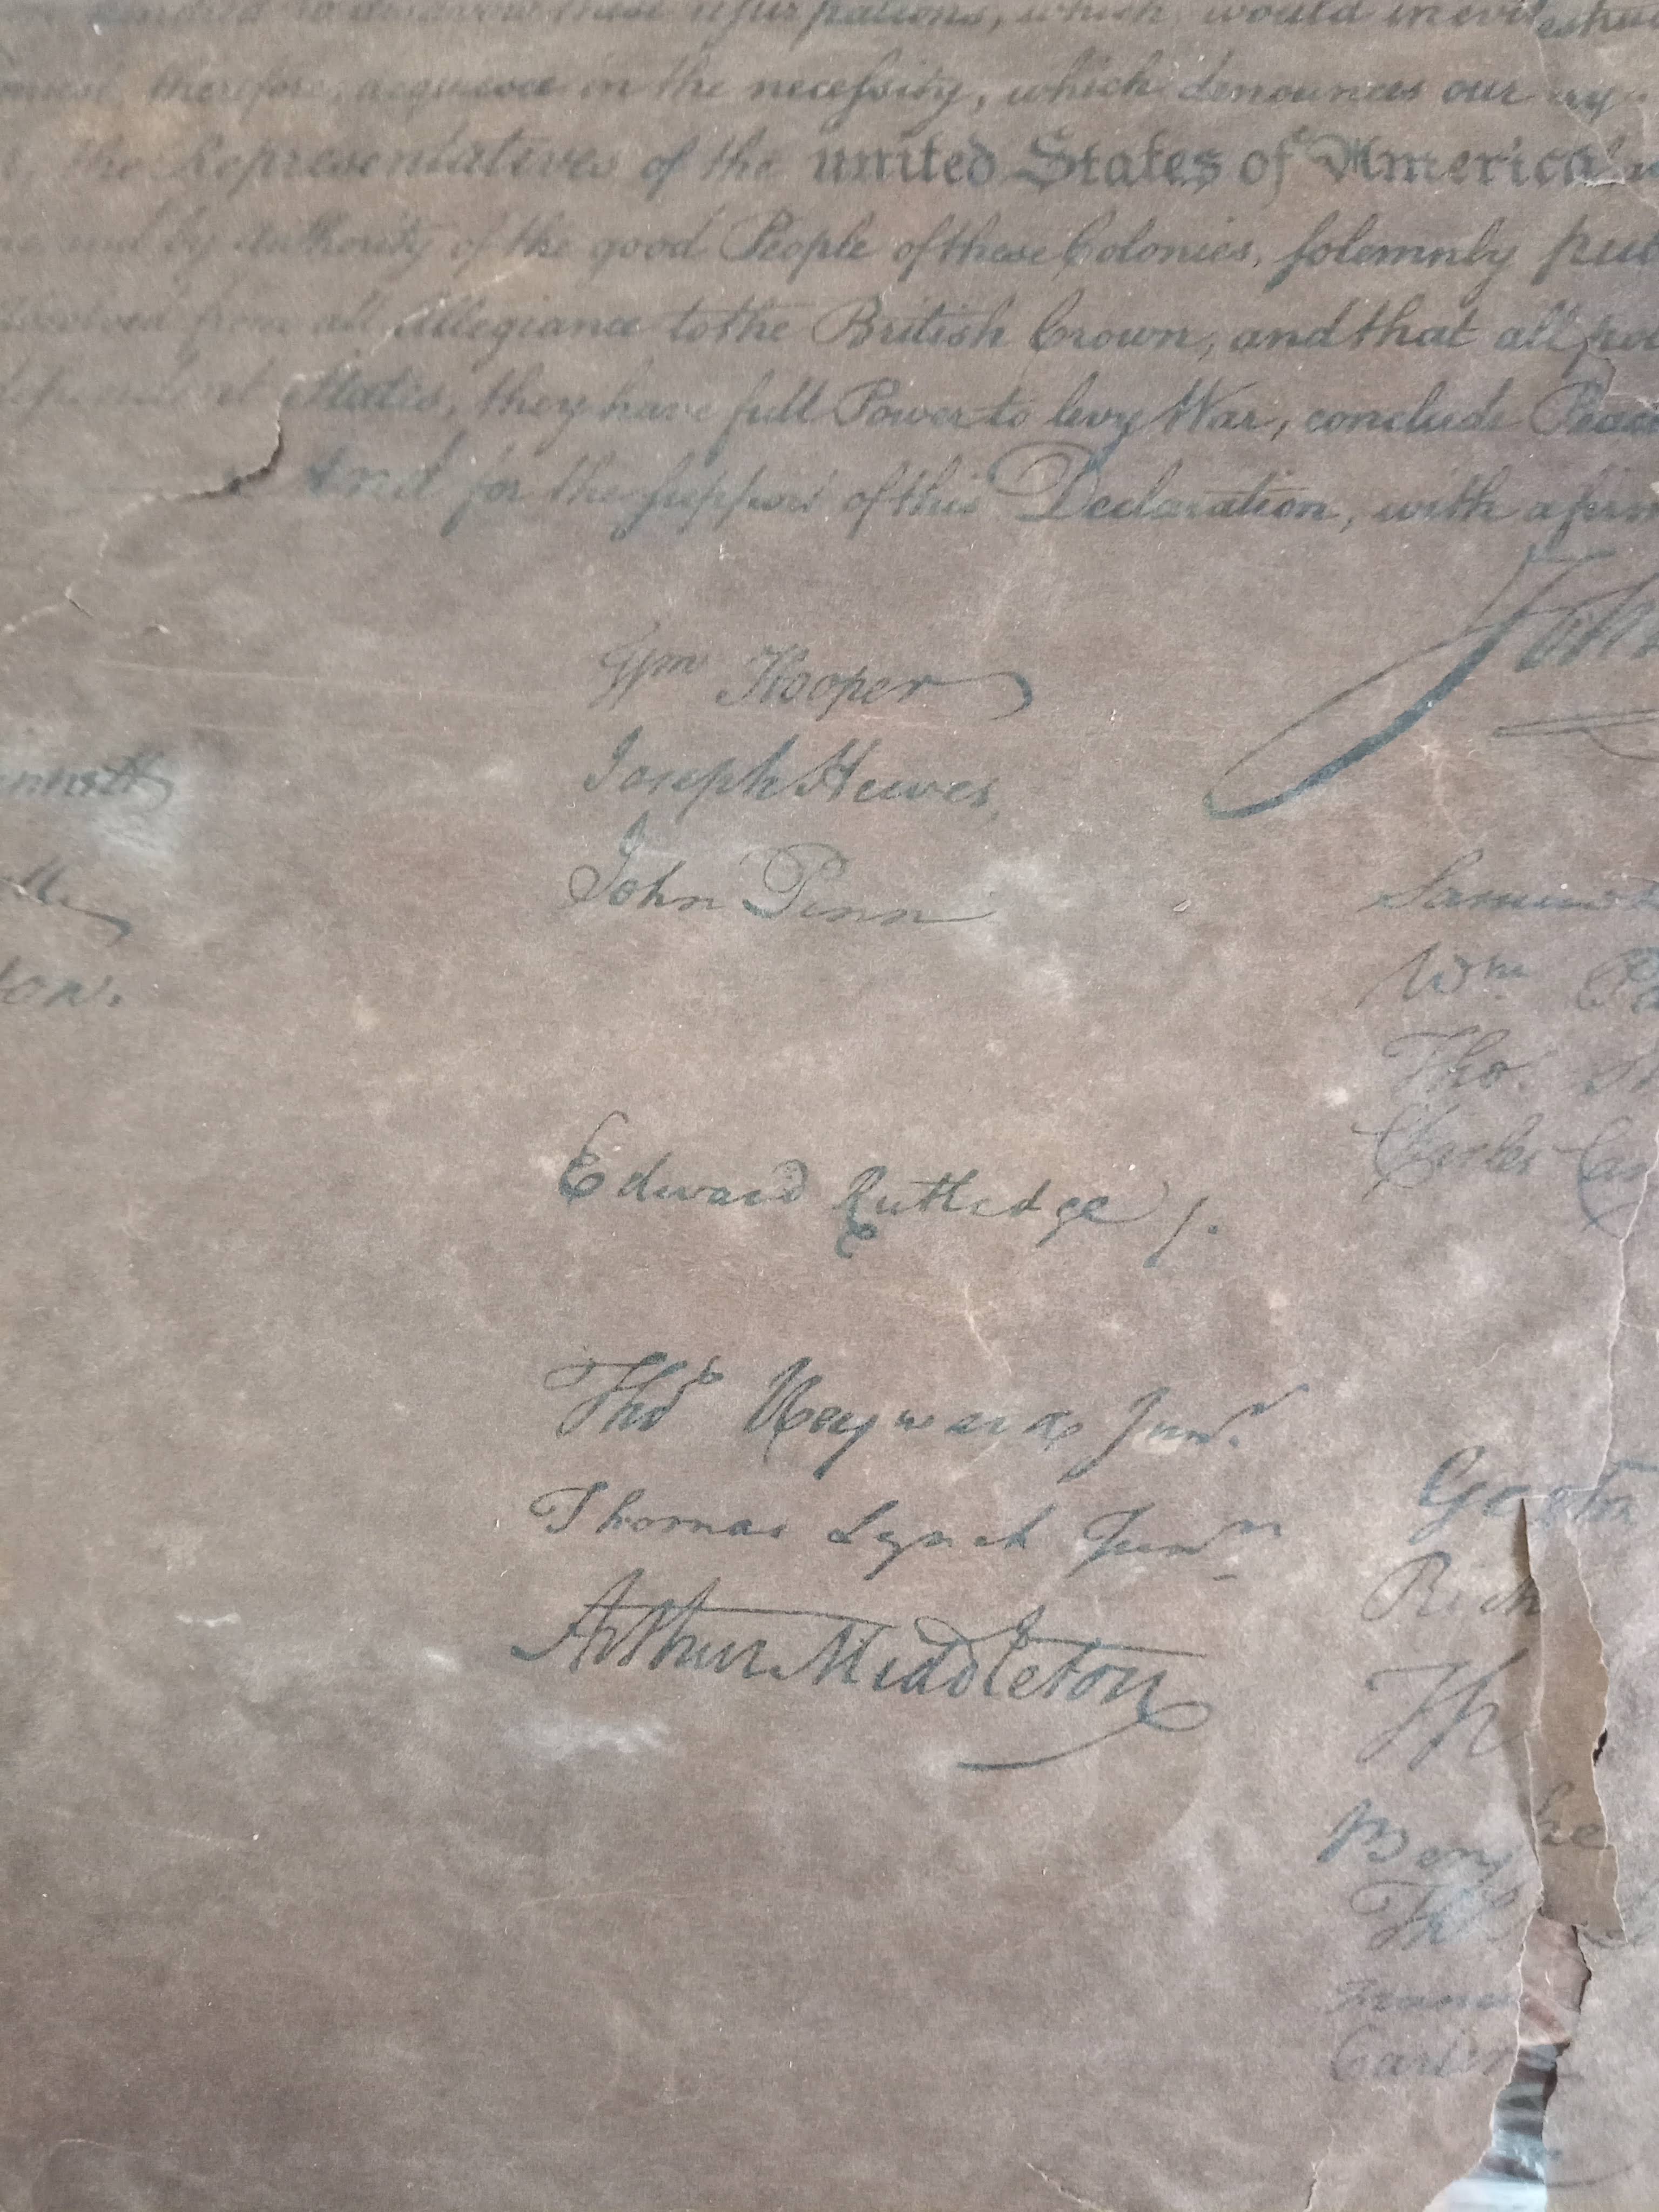 disavow these usurpations, which, would inevit
therefore, acquiesce in the necessity, which denounces our
the Representatives of the united States of America
and by authority of the good People of these Colonies, solemnly pub
from all allegiance to the British Crown, and that all
States, they have full Power to levy War, conclude Peace
And for the support of this Declaration, with a firm
Wm Hooper
Joseph Hewes,
John Penn
Edward Rutledge /.
Thos Heyward Junr.
Thomas Lynch Junr.
Arthur Middleton
nnett
ll
ton.
John
Samuel
Wm. Pa
Tho. St
Charles Car
Geo
Rich
Th
Benj
Th
Carter